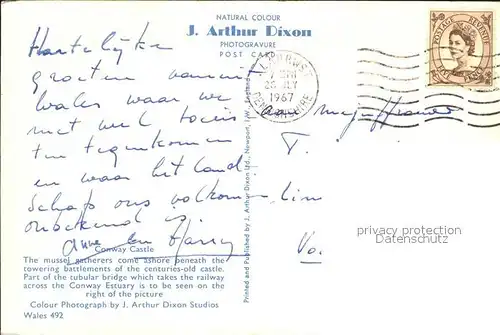 NATURAL COLOUR
J. Arthur Dixon
PHOTOGRAVURE
POST CARD
Hartelijke
groeten vanuit
Wales waar we
met veel toeris
ten tegenkomen
en waar het land
schap ons volkomen
onbekend is.
Anne en Harry
Conway Castle
The mussel gatherers come ashore beneath the
towering battlements of the centuries-old castle.
Part of the tubular bridge which takes the railway
across the Conway Estuary is to be seen on the
right of the picture
Colour Photograph by J. Arthur Dixon Studios
Wales 492
Printed and Published by J. Arthur Dixon Ltd., Newport, I.W., England
LLANRWST
1967
DENBIGHSHIRE
POSTAGE REVENUE
T.
privacy protection
Datenschutz